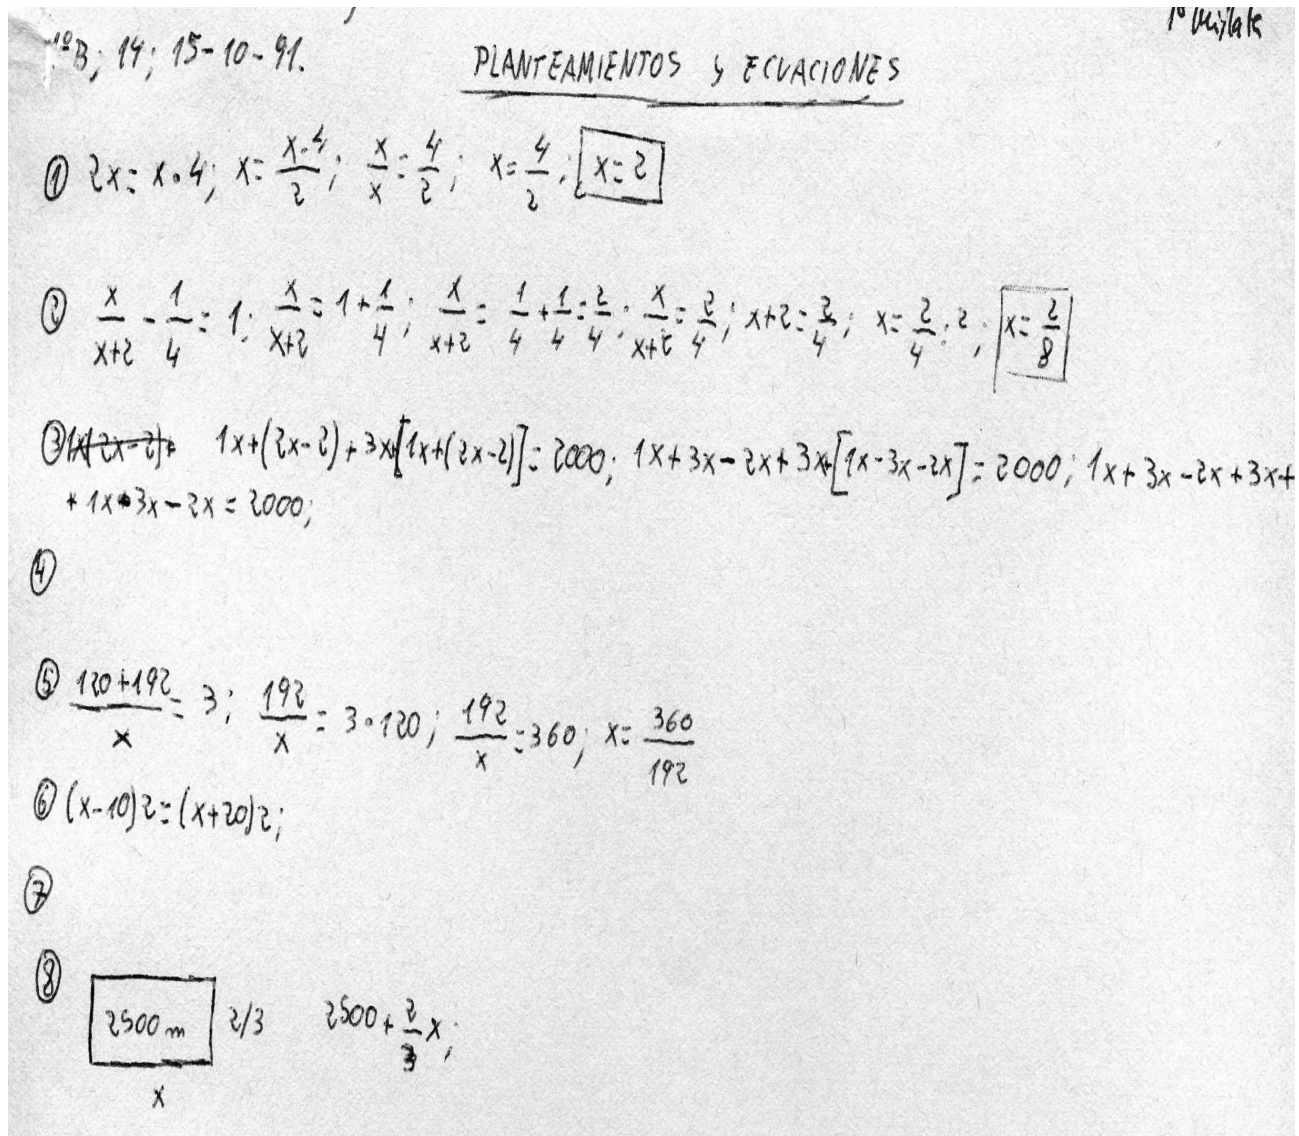 1ºB; 14; 15-10-91.
PLANTEAMIENTOS y ECUACIONES
① 2x = x·4; x = x·4/2; x/x = 4/2; x = 4/2; x = 2
② x/x+2 - 1/4 = 1; x/x+2 = 1 + 1/4; x/x+2 = 1/4 + 1/4 = 2/4; x/x+2 = 2/4; x+2 = 2/4; x = 2/4 : 2; x = 2/8
③ 1x(2x-2)+ 1x+(2x-2)+3x+[1x+(2x-2)] = 2000; 1x+3x-2x+3x+[1x-3x-2x] = 2000; 1x+3x-2x+3x+
+1x·3x-2x = 2000;
④
⑤ 120+192/x = 3; 192/x = 3·120; 192/x = 360; x = 360/192
⑥ (x-10)2 = (x+20)2;
⑦
⑧ 2500 m 2/3 2500 + 2/3 x;
x